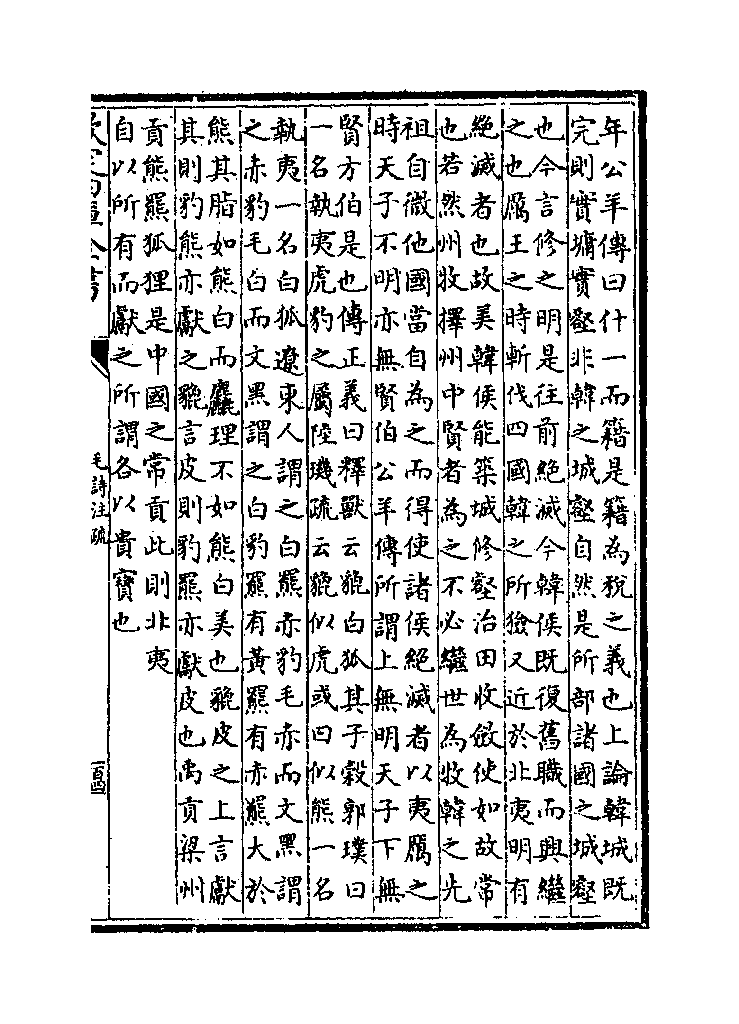 年公羊傳曰什一而籍是籍為稅之義也上論韓城既
完則實墉實壑非韓之城壑自然是所部諸國之城壑
也今言修之明是往前絕滅今韓侯既復舊職而興繼
之也厲王之時斬伐四國韓之所獫又近於北夷明有
絕滅者也故美韓侯能築城修壑治田收斂使如故常
也若然州牧擇州中賢者為之不必繼世為牧韓之先
祖自微他國當自為之而得使諸侯絕滅者以夷厲之
時天子不明亦無賢伯公羊傳所謂上無明天子下無
賢方伯是也傳正義曰釋獸云貔白狐其子縠郭璞曰
一名執夷虎豹之屬陸璣疏云貔似虎或曰似熊一名
執夷一名白狐遼東人謂之白羆赤豹毛赤而文黑謂
之赤豹毛白而文黑謂之白豹羆有黃羆有赤羆大於
熊其脂如熊白而麤理不如熊白美也貔皮之上言獻
其則豹熊亦獻之貔言皮則豹羆亦獻皮也禹貢梁州
貢熊羆狐狸是中國之常貢此則北夷
自以所有而獻之所謂各以貴寶也
欽定四庫全書
毛詩注疏